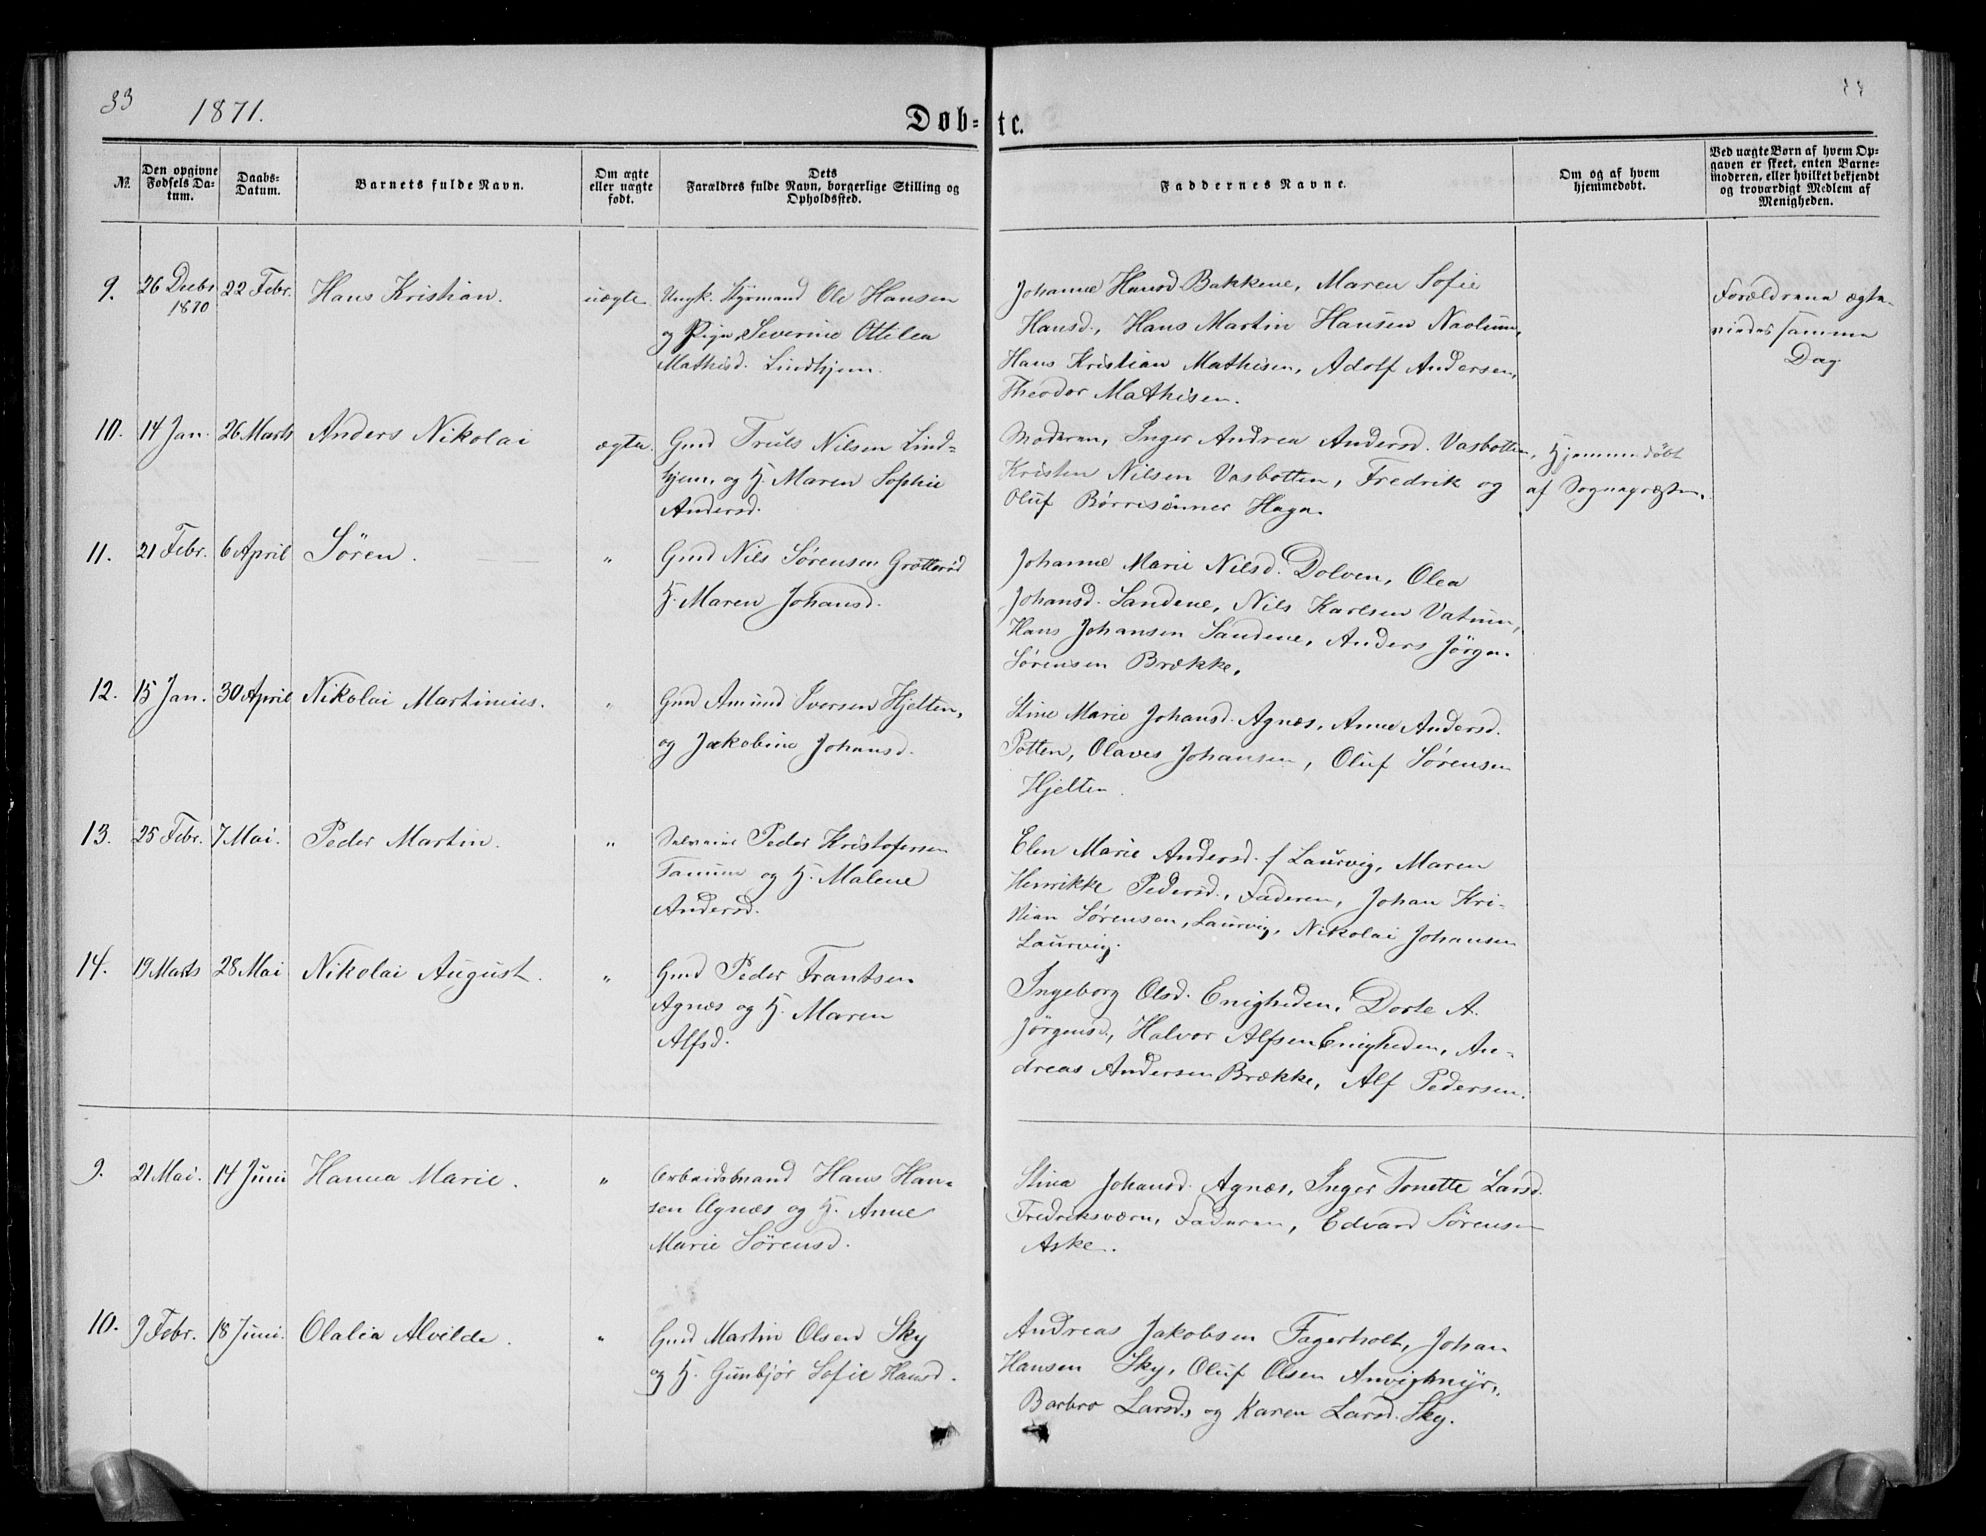 33
1871.
Døb-
te.
№.
Den opgivne
Fødsels Da-
tum.
Daabs-
Datum.
Barnets fulde Navn.
Om ægte
eller uægte
født.
Dets
Forældres fulde Navn, borgerlige Stilling og
Opholdssted.
Faddernes Navne.
Om og af hvem
hjemmedøbt.
Ved uægte Børn af hvem Op-
gaven er skeet, enten Barne-
moderen, eller hvilket bekjendt
og troværdigt Medlem af
Menigheden.
9.
26 Decbr
1870
22 Febr.
Hans Kristian.
uægte
Ungk. Styrmand Ole Hansen
og Pige Severine Ottilea
Mathisd. Lindhjem.
Johanne Hansd Bakkene, Maren Sofie
Hansd., Hans Martin Hansen Naolum,
Hans Kristian Mathisen, Adolf Andersen,
Theodor Mathisen.
Forældrene ægte-
viedes samme
Dag
10.
14 Jan.
26 Marts
Anders Nikolai
ægte.
Gmd Truls Nilsen Lind-
hjem, og H. Maren Sophie
Andersd.
Moderen, Inger Andrea Andersd. Vasbotten,
Kristen Nilsen Vasbotten, Fredrik og
Oluf Børresønner Haga.
Hjemmedøbt
af Sognepræsten.
11.
21 Febr.
6 April
Søren.
"
Gmd Nils Sørensen Grøtterød
H. Maren Johansd.
Johanne Marie Nilsd. Dolven, Olea
Johansd. Sandene, Nils Karlsen Vatum,
Hans Johansen Sandene, Anders Jørgn.
Sørensen Brække.
12.
15 Jan.
30 April
Nikolai Martinius.
"
Gmd Amund Iversen Hjelten,
og Jakobine Johansd.
Stine Marie Johansd. Agnæs, Anne Andersd.
Potten, Olaves Johansen, Oluf Sørensen
Hjelten.
13.
25 Febr.
7 Mai.
Peder Martin.
"
Selveier Peder Kristofersen
Tanum og H. Malene
Andersd.
Elen Marie Andersd. f Laurvig, Maren
Henrikke Pedersd., Faderen, Johan Kri-
stian Sørensen, Laurvig, Nikolai Johansen
Laurvig.
14.
19 Marts
28 Mai
Nikolai August.
"
Gmd Peder Frantsen
Agnæs og H. Maren
Alfsd.
Ingeborg Olsd. Enigheden, Dorte A.
Jørgensd., Halvor Alfsen Enigheden, An-
dreas Andersen Brække, Alf Pedersen.
9.
21 Mai.
14 Juni
Hanna Marie.
"
Arbeidsmand Hans Han-
sen Agnæs og H. Anne
Marie Sørensd.
Stina Johansd. Agnæs, Inger Tonette Larsd.
Fredriksværn, Faderen, Edvard Sørensen
Aske.
10.
9 Febr.
18 Juni.
Olalia Alvilde.
"
Gmd Martin Olsen Sky
og H. Gunbjør Sofie Hansd.
Andreas Jakobsen Fagerholt, Johan
Hansen Sky, Oluf Olsen Anvigmyr,
Barbro Larsd, og Karen Larsd. Sky.